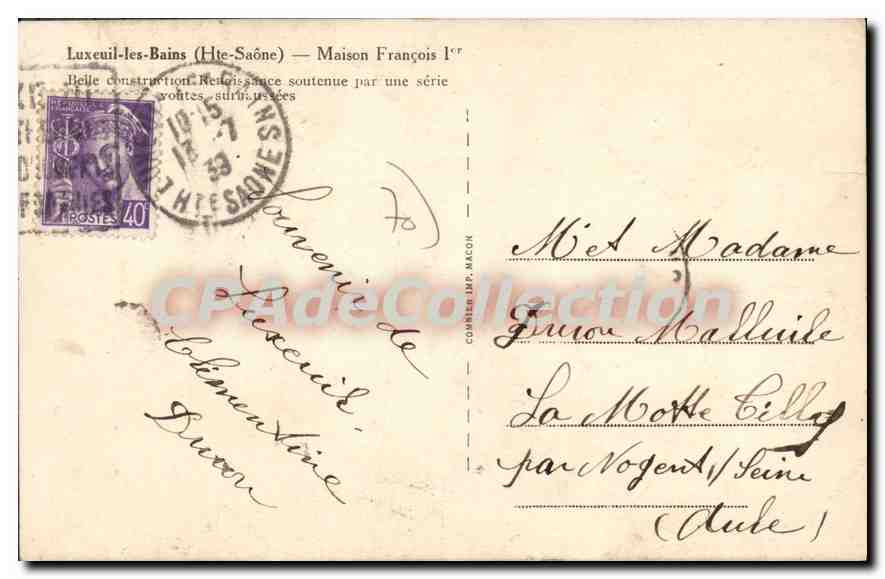 Luxeuil-les-Bains (Hte-Saône) — Maison François Ier
Belle construction Renaissance soutenue par une série
voutes surhaussées
POSTES 40c
10-15
13 -7
39
HTE SAONE
Souvenir de
Luxeuil
Clémentine
Duron
COMBIER IMP. MACON
CPAdeCollection
Mr et Madame
Duron Malluile
La Motte Tilly
par Nogent s/ Seine
(Aube)